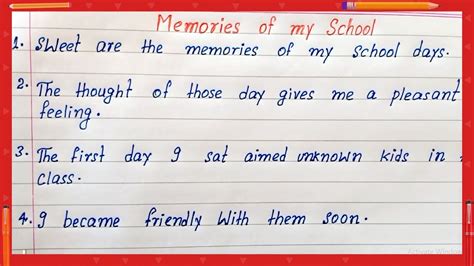 Memories of my School
1. Sweet are the memories of my school days.
2. The thought of those day gives me a pleasant
feeling.
3. The first day I sat aimed unknown kids in
class.
4. I became friendly with them soon.
Activate Window